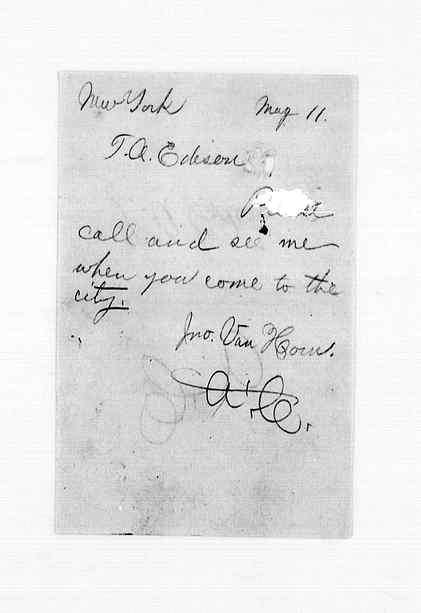 New York May 11.
T.A. Edison
call and see me
when you come to the
city.
Jno. Van Horne.